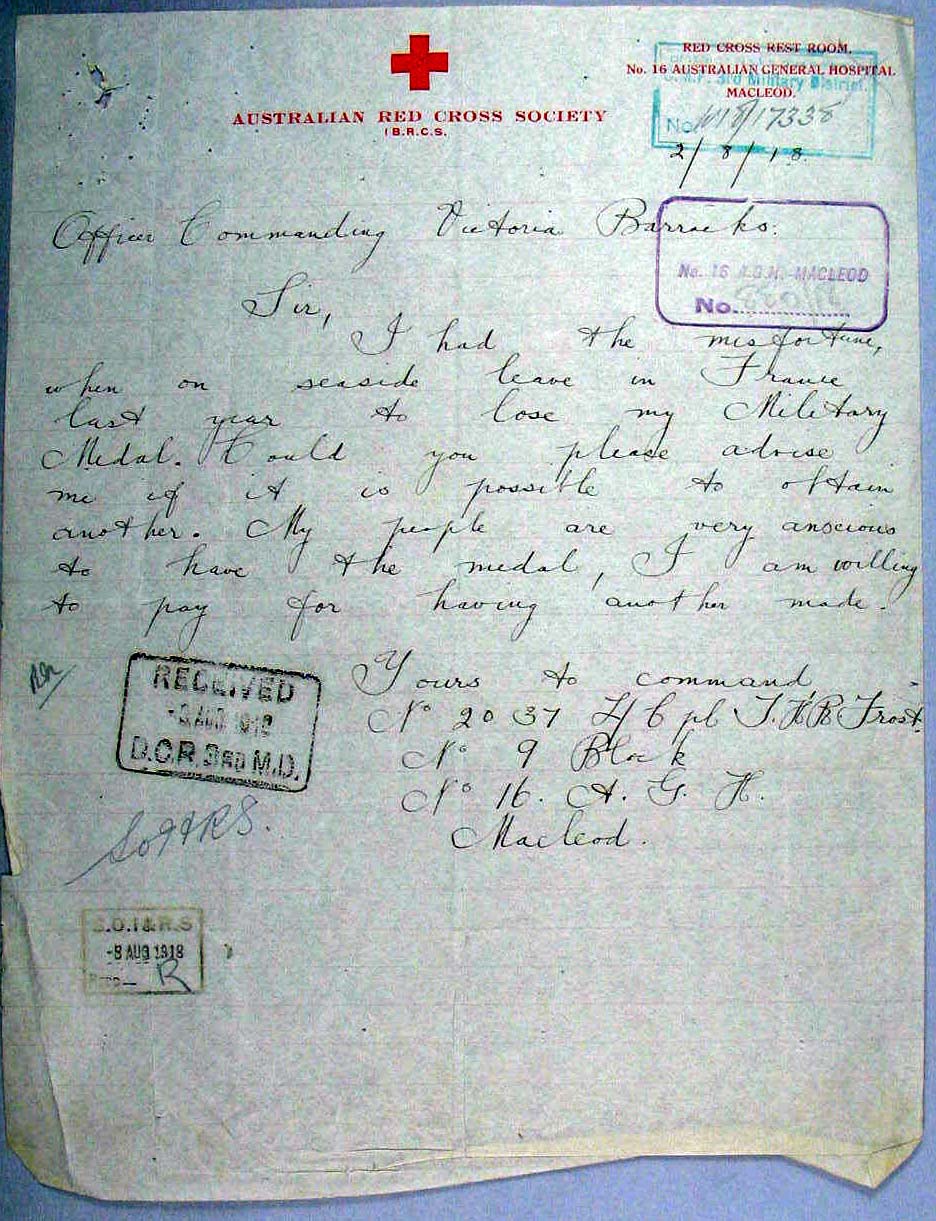 RED CROSS REST ROOM,
No. 16 AUSTRALIAN GENERAL HOSPITAL
MACLEOD.
AUSTRALIAN RED CROSS SOCIETY
(B.R.C.S.
3rd Military District.
No 17338
2/8/18
Officer Commanding Victoria Barracks.
No. 16 A.G.H. MACLEOD
No.
Sir,
I had the misfortune,
when on seaside leave in France
last year to lose my Military
Medal. Could you please advise
me if it is possible to obtain
another. My people are very anscious
to have the medal, I am willing
to pay for having another made.
Yours to command
No 2037 L/Cpl T.H.B Frost.
No 9 Block
No 16. A. G. H.
Macleod.
RECEIVED
AUG 1918
D.C.R. 3RD M.D.
S.O.I & R.S
-8 AUG 1918
R